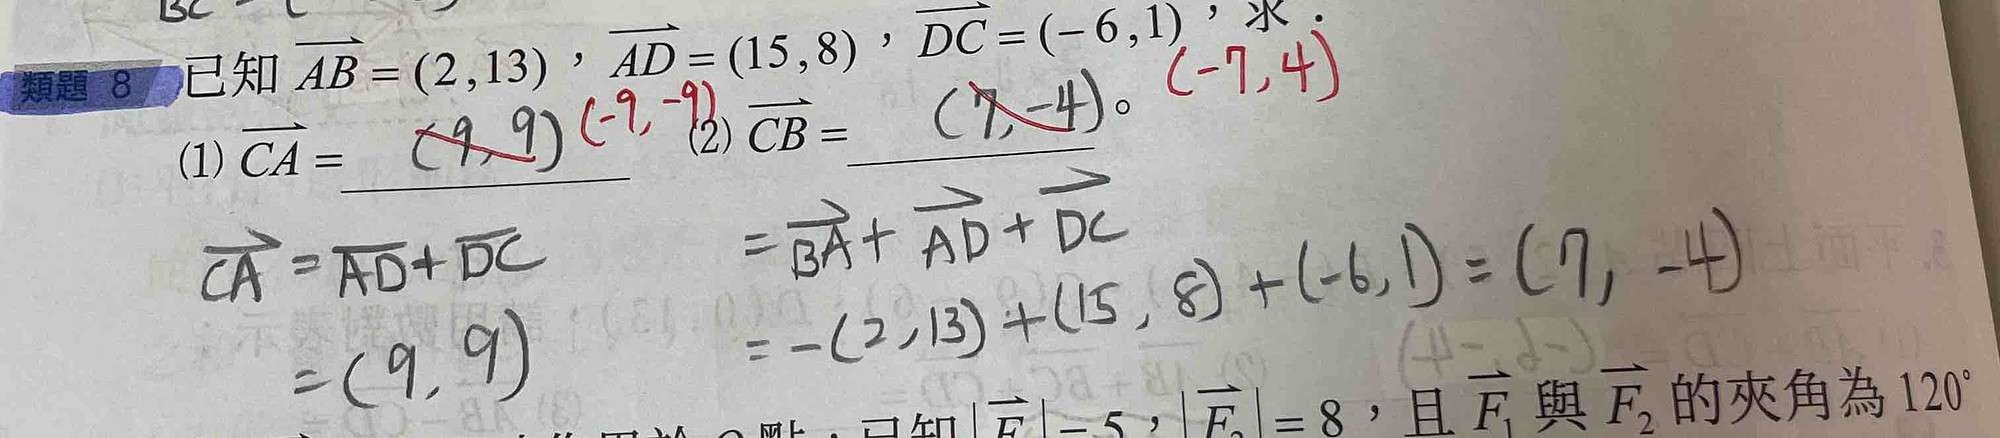 已知 AB = (2,13)，AD = (15,8)，DC = (-6,1)，求：
類題 8
(1) CA = (9, 9) (-9, -9) (2) CB = (7, -4)。 (-7, 4)
CA = AD + DC
= (9, 9)
= BA + AD + DC
= -(2,13) + (15, 8) + (-6,1) = (7, -4)
已知|F|=5，|F₂|=8，且 F₁ 與 F₂ 的夾角為 120°